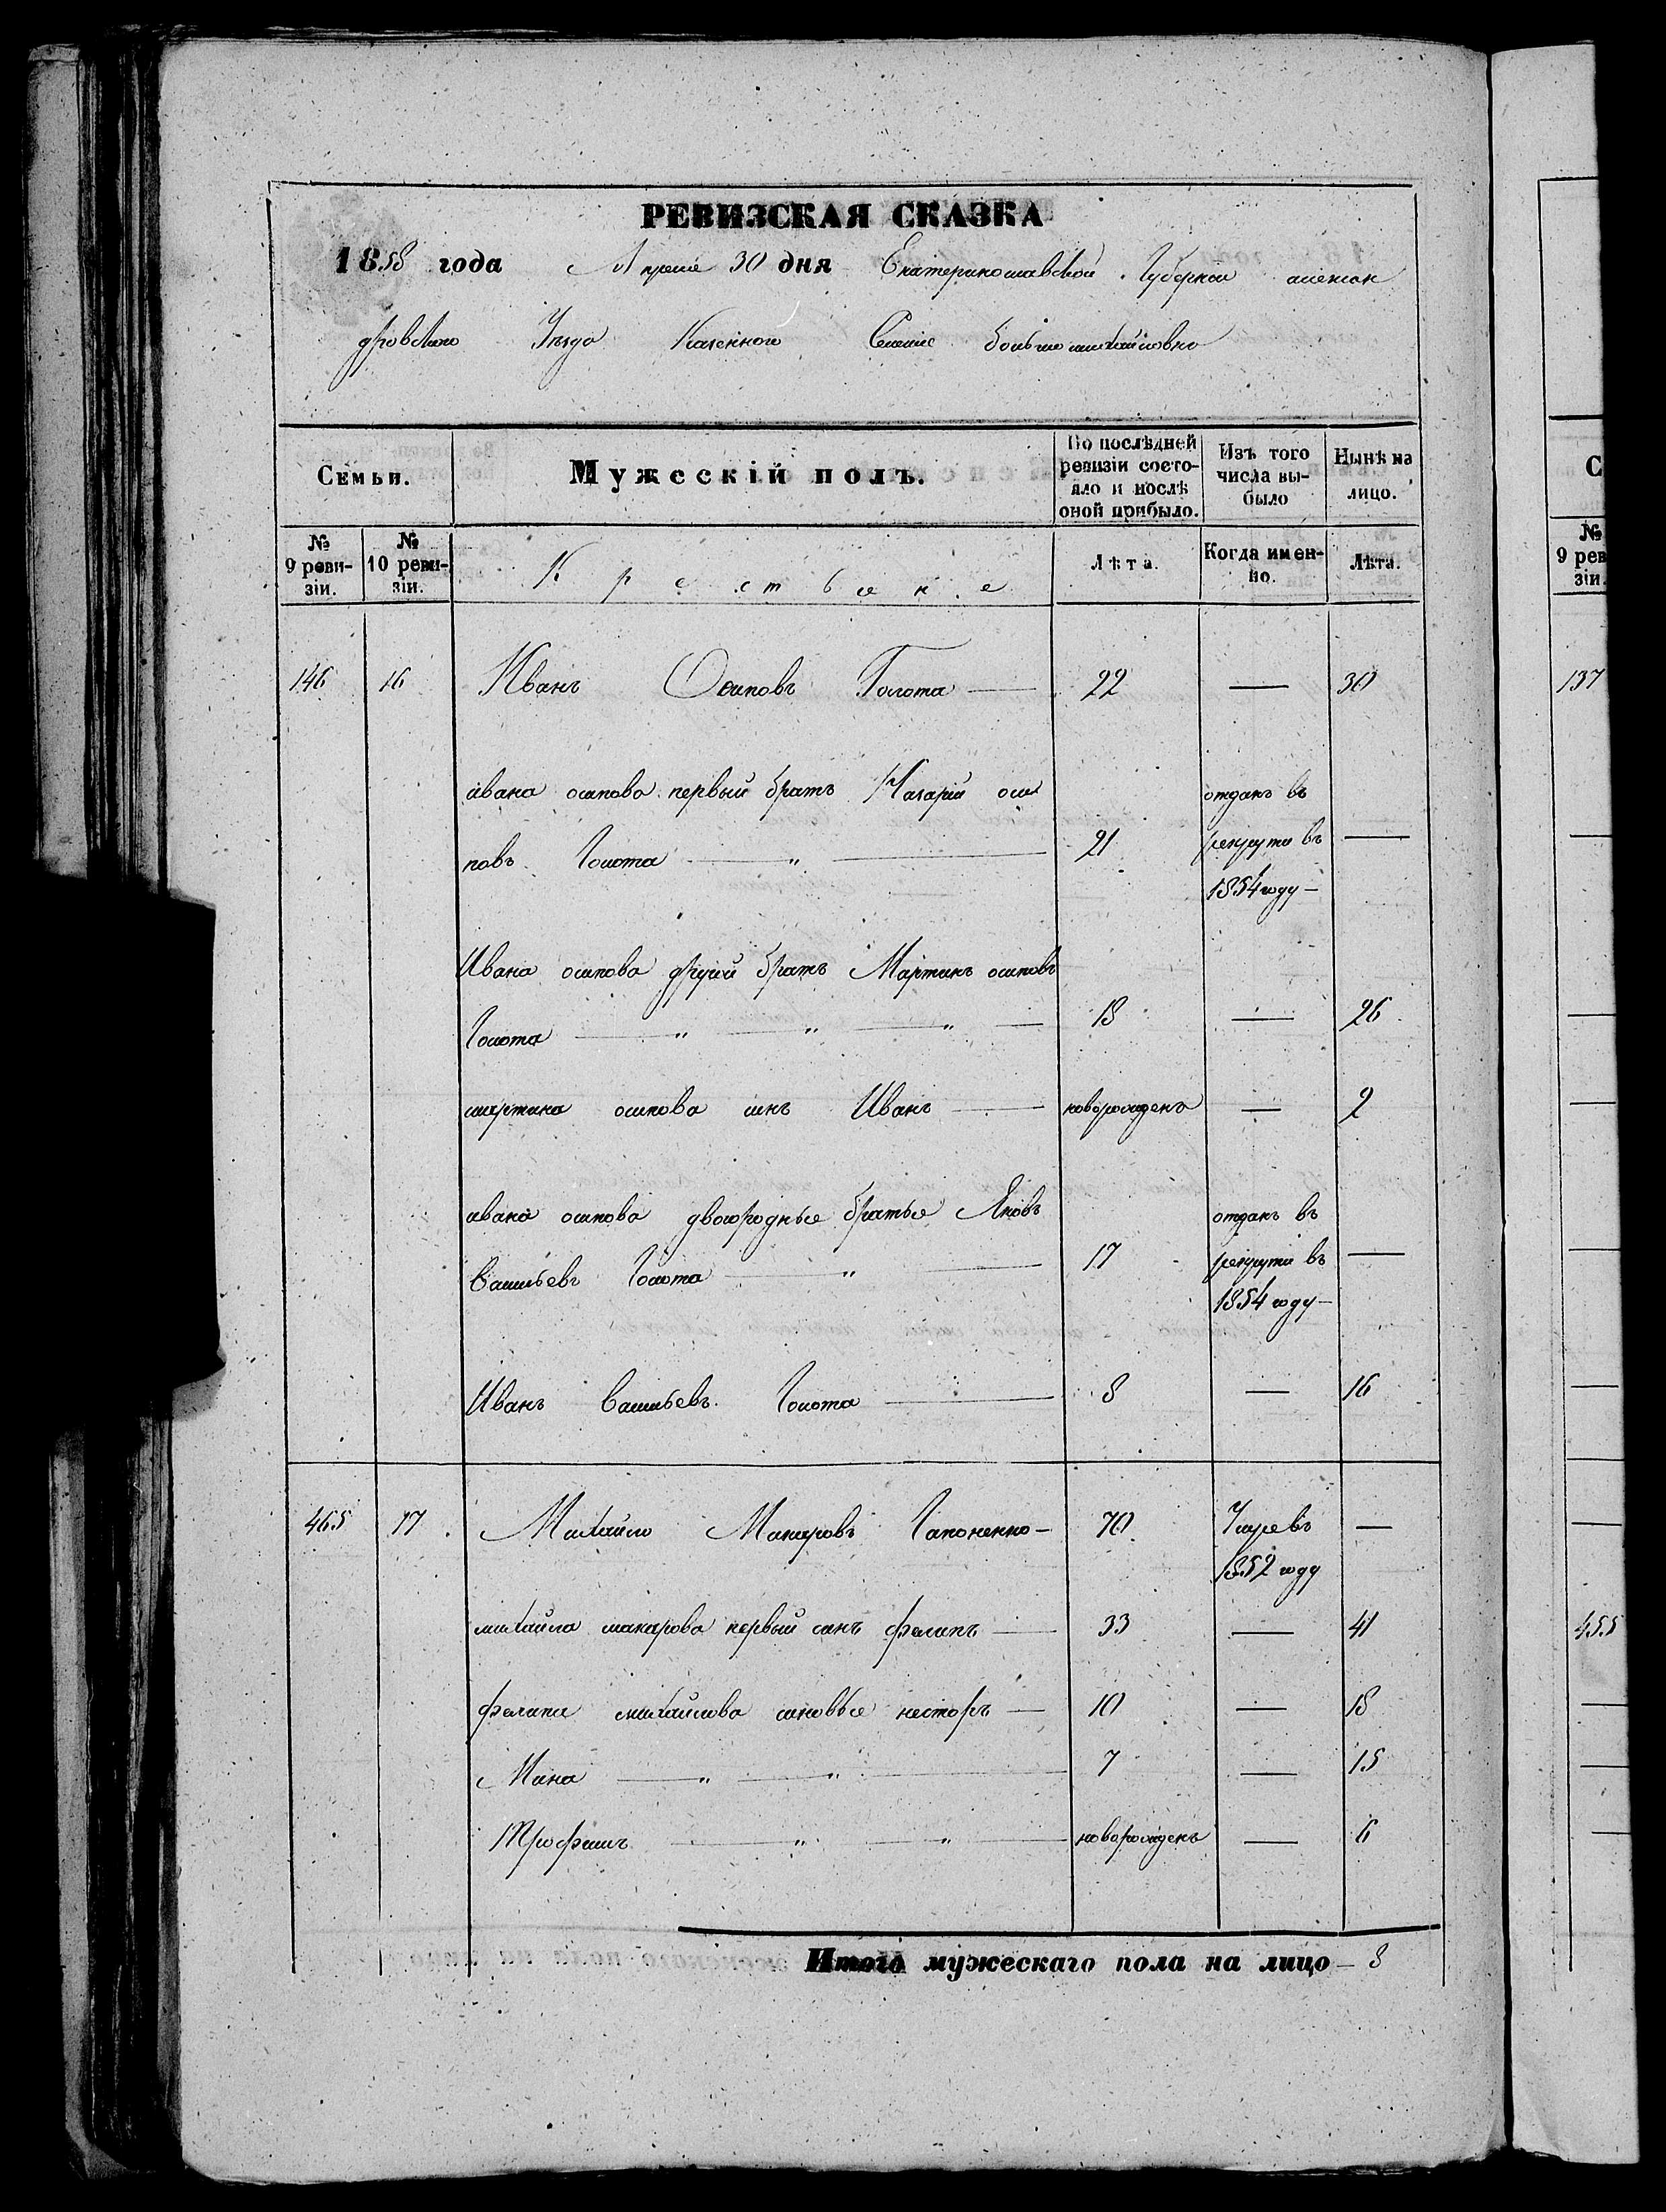 РЕВИЗСКАЯ СКАЗКА
1858 года Апреля 30 дня Екатеринославской Губернии алексан
дровского Уезда Казенного Селение большемихайловка
Семьи.
Мужескій полъ.
По послѣдней ревизіи состояло и послѣ оной прибыло.
Изъ того числа выбыло
Нынѣ на лицо.
№ 9 ревизіи.
№ 10 ревизіи.
Крестьяне
Лѣта.
Когда именно.
Лѣта.
146 16 Иванъ Осиповъ Голота — 22 — 30
ивана осипова первый братъ Назарий оси отданъ въ
повъ Голота — „ — 21 рекрути въ —
1854 году —
Ивана осипова другий братъ Мартинъ осиповъ
Голота — „ — „ — „ — 18 — 26
мартина осипова синъ Иванъ — новорожденъ — 2
ивана осипова двоюродные братье Яковъ отданъ въ
Васильевъ Голота — „ — 17 рекрути въ —
1854 году —
Иванъ Васильевъ Голота — 8 — 16
465 17 Михайло Макаровъ Гапоненко — 70 Умре въ —
1852 году
михайла макарова первый синъ филипъ — 33 — 41
филипа михайлова синовье несторъ — 10 — 18
Мина — „ — „ — 7 — 15
Трофимъ — „ — „ — новорожденъ — 6
Итого мужескаго пола на лицо — 8
С
№ 9 реви
зіи.
137
455